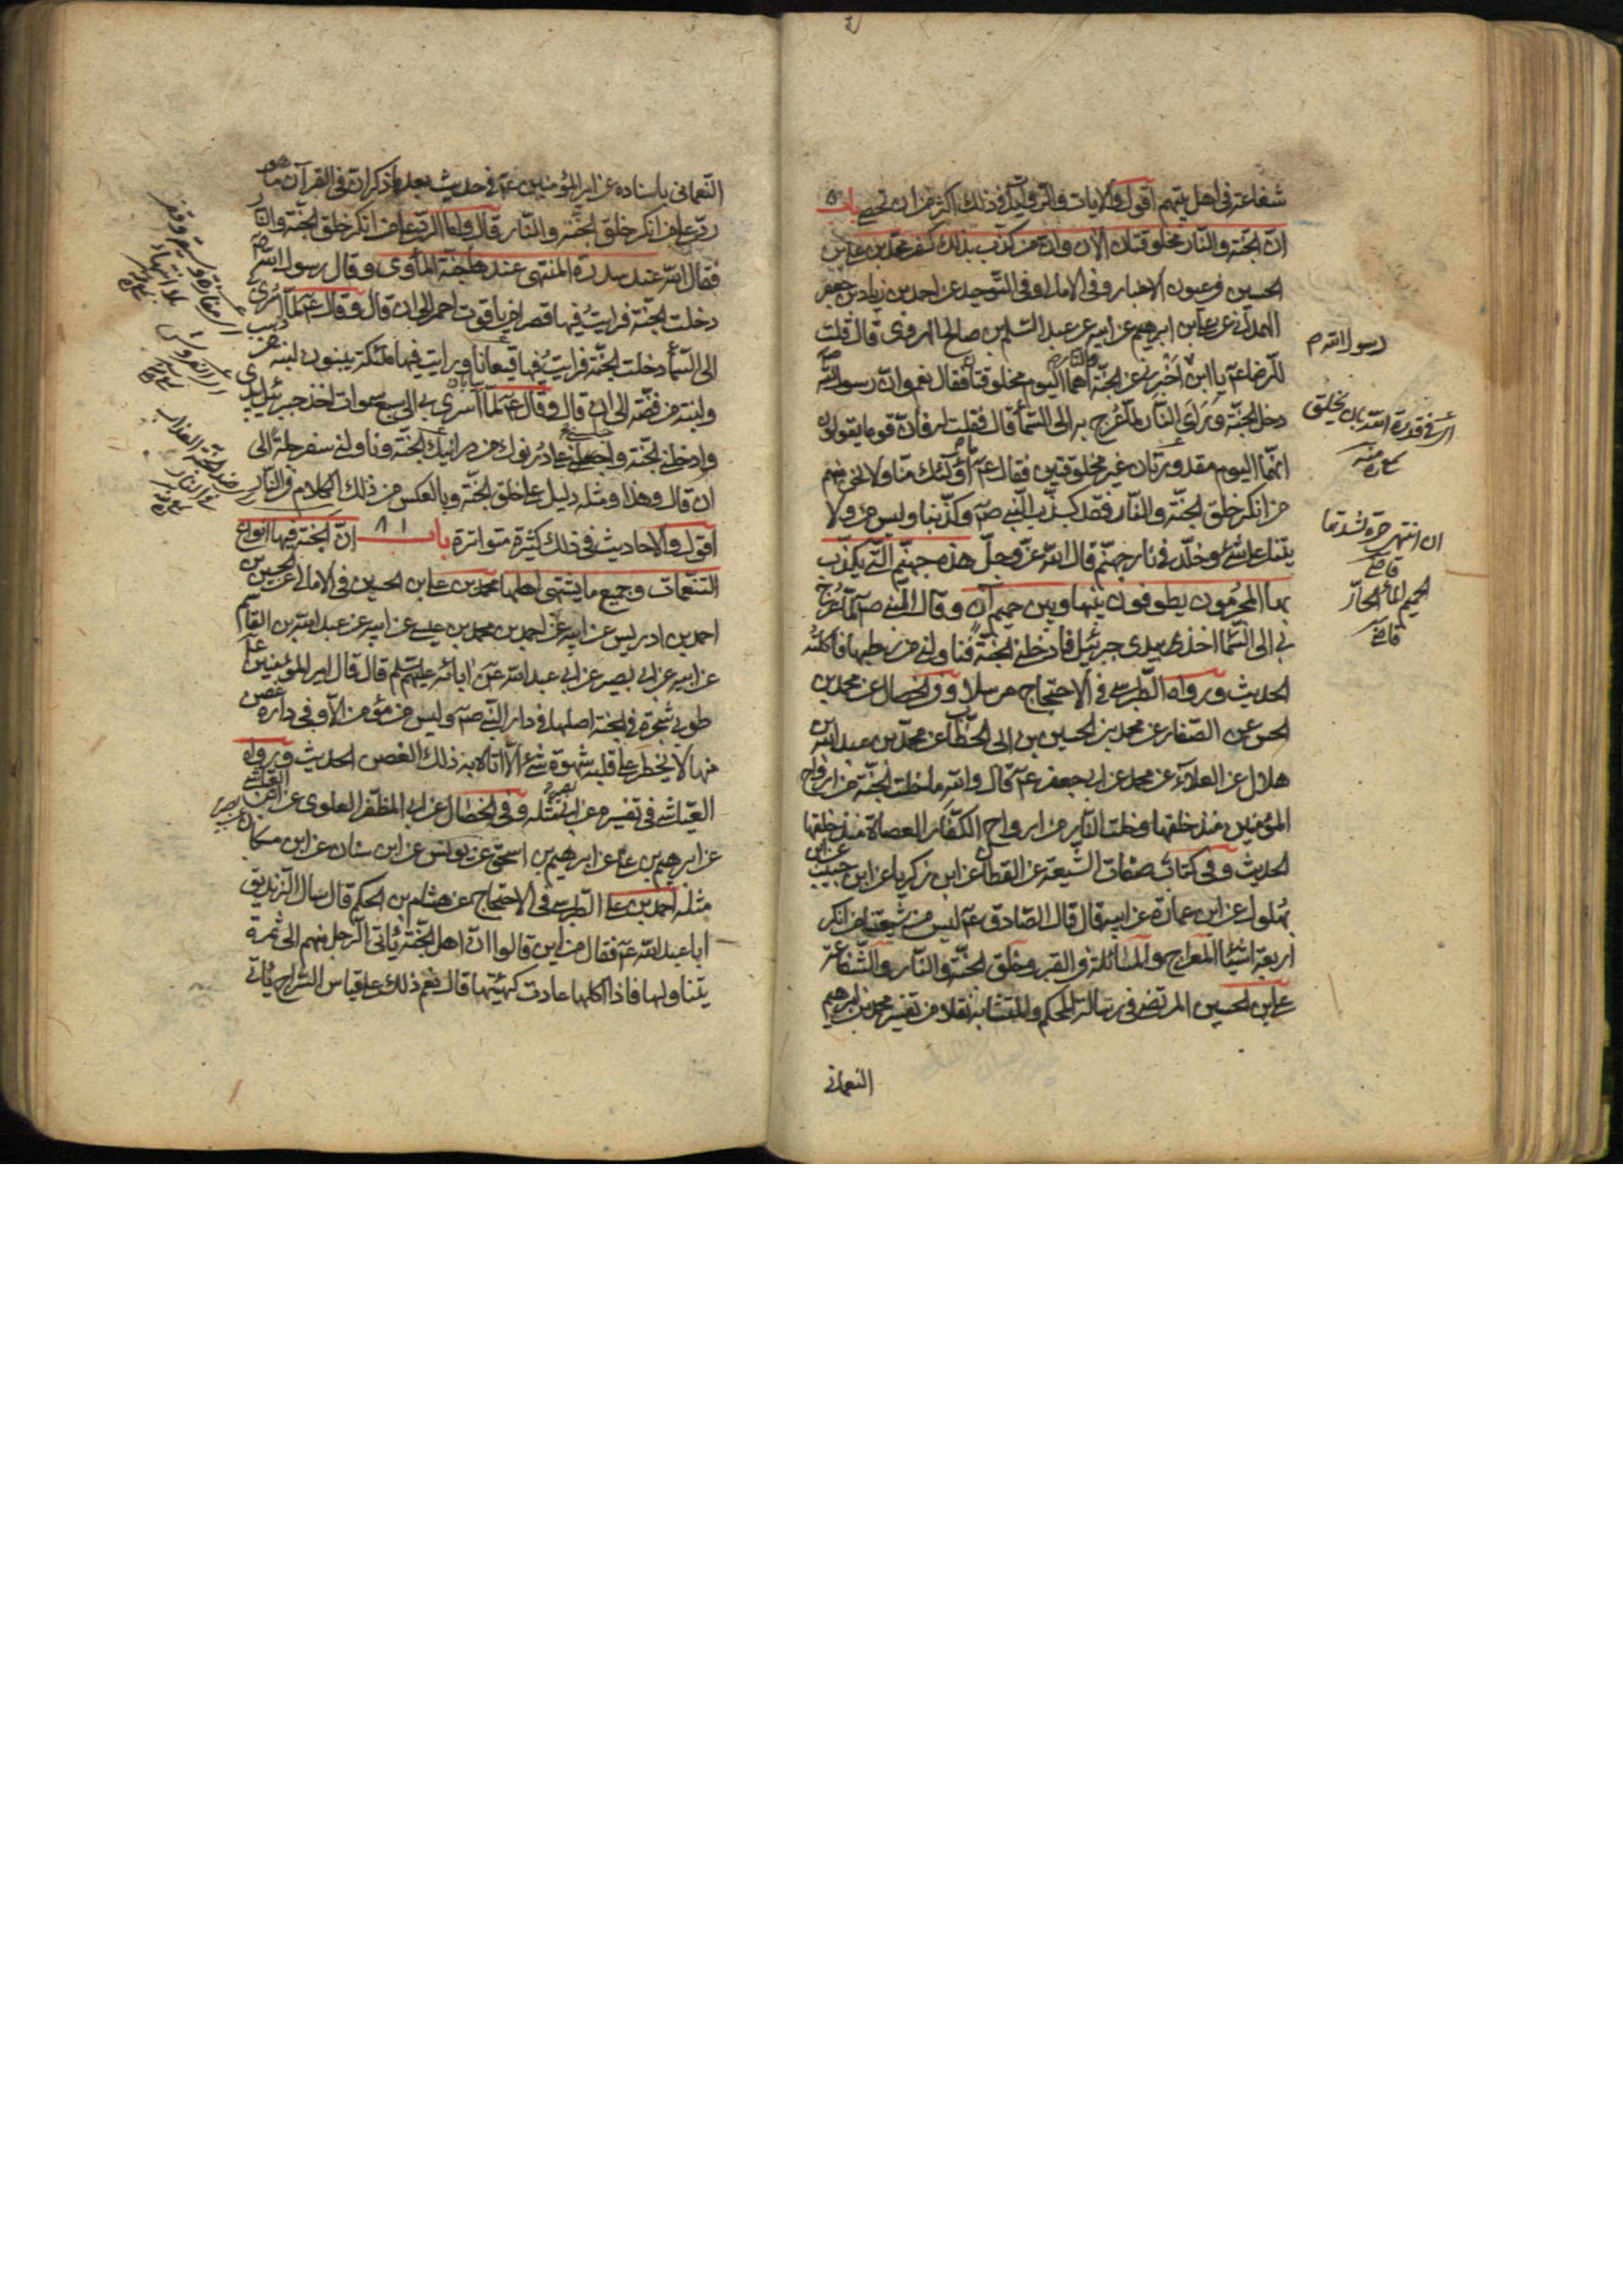 شفاعته في اهل بيتهم اقول والايات والروايات في ذلك اكثر من ان تحصى باب
ان الجنة والنار مخلوقتان الان وان من كذب بذلك كفر محمد بن علي بن
الحسين في عيون الاخبار وفي الامالي وفي التوحيد عن احمد بن زياد بن جعفر
الهمداني عن علي بن ابرهيم عن ابيه عن عبد السلم بن صالح الهروي قال قلت
للرضا عم يا ابن اخبرني عن الجنة والنار اهما اليوم مخلوقتان فقال نعم وان رسول الله
دخل الجنة وراى النار لما عرج به الى السما قال فقلت له فان قوما يقولون
انهما اليوم مقدورتان غير مخلوقتين فقال عم ما اولئك منا ولا نحن منهم
من انكر خلق الجنة والنار فقد كذب النبي صم وكذبنا وليس من ولا
يتنا على شئ وخلد في نار جهنم قال الله عز وجل هذه جهنم التي يكذب
بها المجرمون يطوفون بينها وبين حميم آن وقال النبي صم لما عرج
بي الى السما اخذ بيدي جبرئيل فادخلني الجنة فناولني من رطبها فاكلته
الحديث ورواه الطبرسي في الاحتجاج مرسلا وفي الخصال عن محمد بن
الحسن عن الصفار عن محمد بن الحسين بن ابي الخطاب عن محمد بن عبد الله بن
هلال عن العلاء عن محمد عن ابي جعفر عم قال والله ما خلت الجنة من ارواح
المؤمنين منذ خلقها وخلت النار من ارواح الكفار العصاة منذ خلقها
الحديث وفي كتاب صفات الشيعة عن القطان عن ابن زكريا عن ابن حبيب عن ابن
بهلول عن ابن عمارة عن ابيه قال قال الصادق عم ليس من شيعتنا من انكر
اربعة اشيا المعراج والمسائلة في القبر وخلق الجنة والنار والشفاعة
علي بن الحسين المرتضى في رسالة المحكم والمتشابه نقلا من تفسير محمد بن ابرهيم
النعماني
رسول الله م
اي في قدرة الله بان يخلق
منه
ان انتهى حره شدتها
قاضي
الحميم الماء الحار
قاضي
النعماني باسناده عن امير المؤمنين عم في حديث بعد ما ذكر ان في القرآن ما هو
رد على من انكر خلق الجنة والنار قال واما الرد على من انكر خلق الجنة والنار
فقال الله عند سدرة المنتهى عندها جنة المأوى وقال رسول الله صم
دخلت الجنة فرايت فيها قصرا من ياقوت احمر الى ان قال وقال عم لما اسري بي
الى السما دخلت الجنة فرايت فيها قيعانا ورايت فيها ملئكة يبنون لبنة من ذهب
ولبنة من فضة الى ان قال وقال عم لما اسري بي الى سبع سموات اخذ جبرئيل بيدي
وادخلني الجنة واجلسني على درنوك من درانيك الجنة وناولني سفرجلة الى
ان قال وهذا ومثله دليل على خلق الجنة وبالعكس من ذلك الكلام في النار
اقول والاحاديث في ذلك كثيرة متواترة باب ٨١ ان الجنة فيها انواع
التنعمات وجميع ما يشتهى اهلها محمد بن علي بن الحسين في الامالي عن الحسين بن
احمد بن ادريس عن ابيه عن احمد بن محمد بن عيسى عن ابيه عن عبد الله بن القاسم
عن ابيه عن ابي بصير عن ابي عبد الله عن ابائه عليهم السلم قال قال امير المؤمنين عم
طوبى شجرة في الجنة اصلها في دار النبي صم وليس من مؤمن الا وفي داره غصن
منها لا يخطر على قلبه شهوة شئ الا اتاه به ذلك الغصن الحديث ورواه
العياشي في تفسيره عن ابي بصير مثله وفي الخصال عن ابي المظفر العلوي عن ابن العياشي
عن ابرهيم بن علي عن ابرهيم بن اسحق عن يونس عن ابن سنان عن ابن مسكان عن ابي بصير
مثله احمد بن علي الطبرسي في الاحتجاج عن هشام بن الحكم قال سال الزنديق
ابا عبد الله عم فقال من اين قالوا ان اهل الجنة ياتي الرجل منهم الى ثمرة
يتناولها فاذا اكلها عادت كهيئتها قال نعم ذلك على قياس السراج ياتي